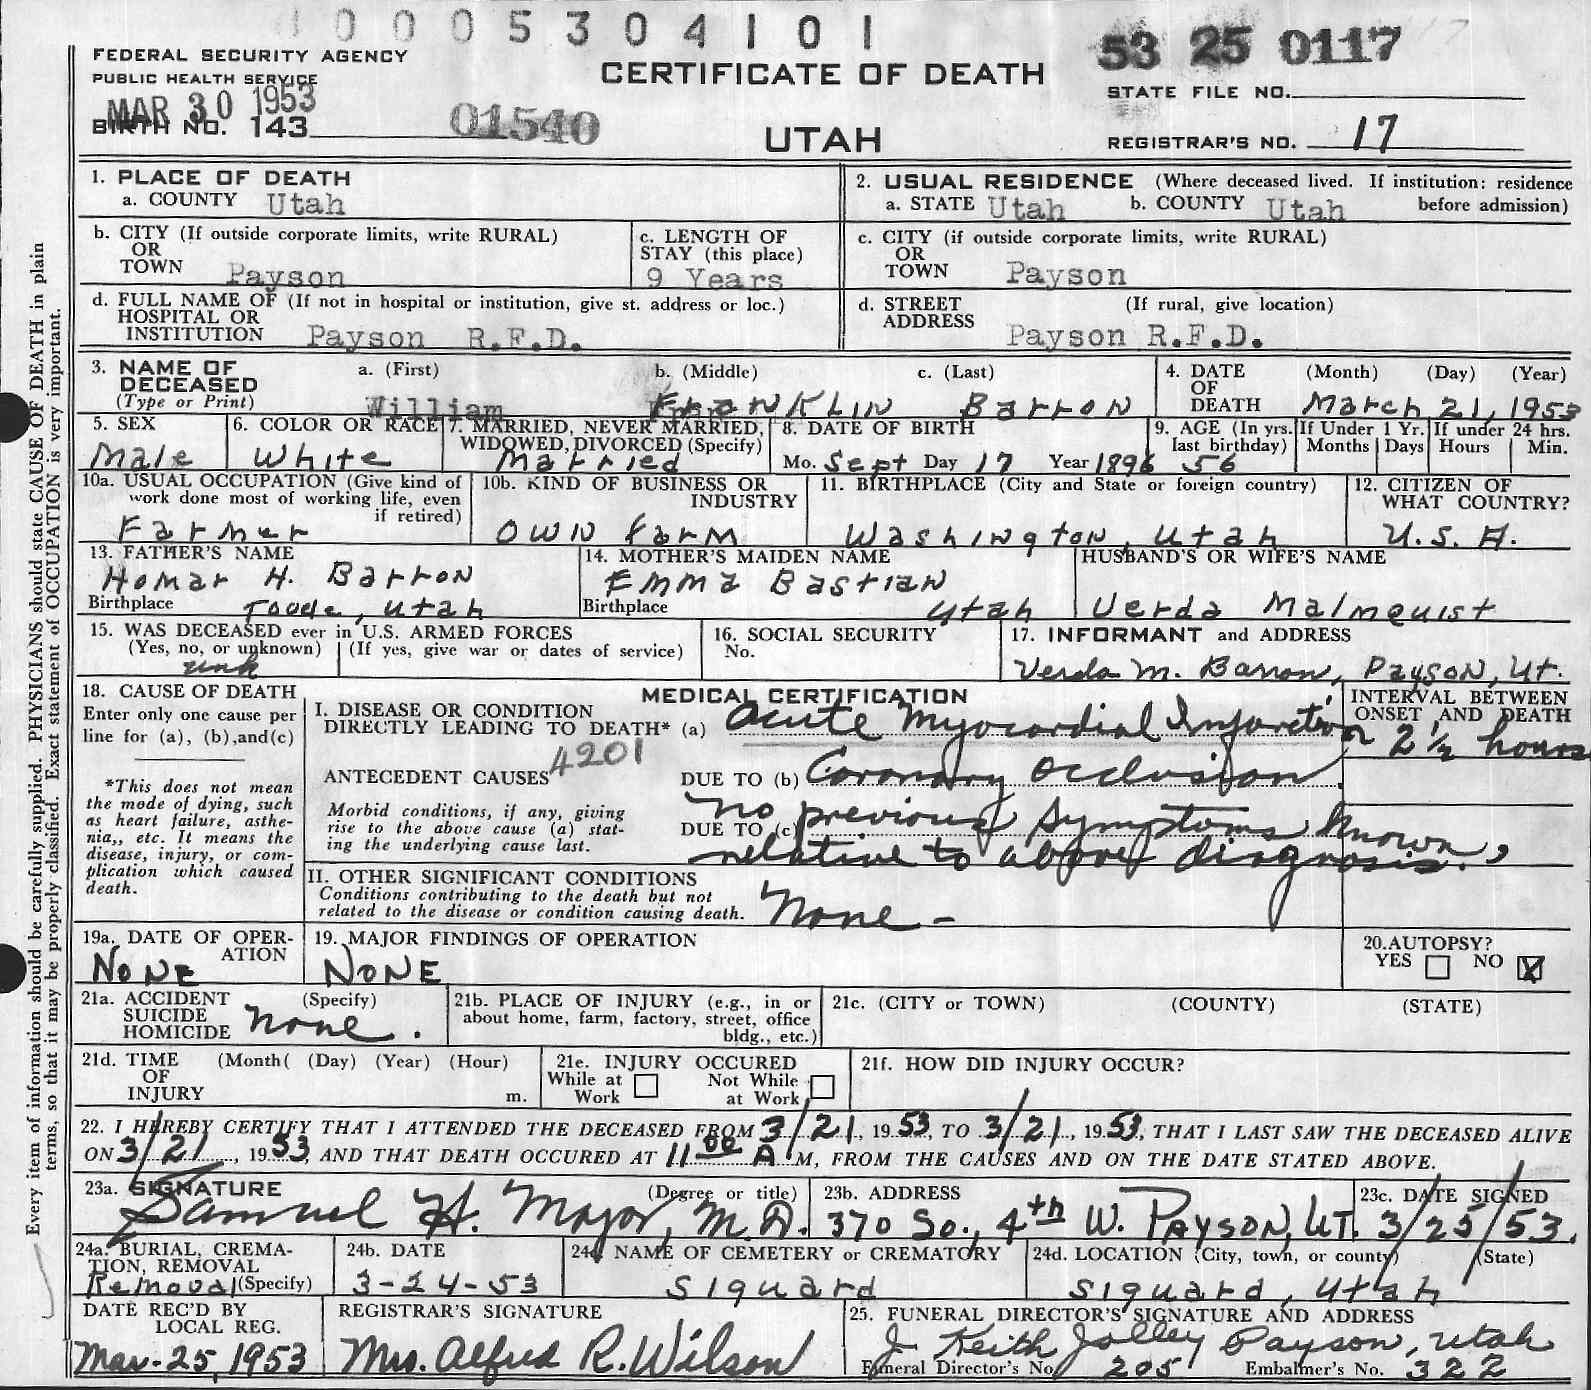 0005304101
FEDERAL SECURITY AGENCY
PUBLIC HEALTH SERVICE
MAR 30 1953
BIRTH NO. 143
01540
CERTIFICATE OF DEATH
UTAH
53 25 0117
STATE FILE NO.
REGISTRAR'S NO. 17
Every item of information should be carefully supplied. PHYSICIANS should state CAUSE OF DEATH in plain
terms, so that it may be properly classified. Exact statement of OCCUPATION is very important.
1. PLACE OF DEATH
a. COUNTY Utah
2. USUAL RESIDENCE (Where deceased lived. If institution: residence
a. STATE Utah b. COUNTY Utah before admission)
b. CITY (If outside corporate limits, write RURAL)
OR
TOWN Payson
c. LENGTH OF
STAY (this place)
9 Years
c. CITY (if outside corporate limits, write RURAL)
OR
TOWN Payson
d. FULL NAME OF (If not in hospital or institution, give st. address or loc.)
HOSPITAL OR
INSTITUTION Payson R.F.D.
d. STREET (If rural, give location)
ADDRESS Payson R.F.D.
3. NAME OF DECEASED
(Type or Print)
a. (First) b. (Middle) c. (Last)
William Franklin Barron
4. DATE OF DEATH
(Month) (Day) (Year)
March 21, 1953
5. SEX
Male
6. COLOR OR RACE
White
7. MARRIED, NEVER MARRIED,
WIDOWED, DIVORCED (Specify)
Married
8. DATE OF BIRTH
Mo. Sept Day 17 Year 1896
9. AGE (In yrs. last birthday)
56
If Under 1 Yr. If under 24 hrs.
Months Days Hours Min.
10a. USUAL OCCUPATION (Give kind of
work done most of working life, even
if retired)
Farmer
10b. KIND OF BUSINESS OR
INDUSTRY
Own farm
11. BIRTHPLACE (City and State or foreign country)
Washington, Utah
12. CITIZEN OF
WHAT COUNTRY?
U.S.A.
13. FATHER'S NAME
Homar H. Barron
Birthplace Tooele, Utah
14. MOTHER'S MAIDEN NAME
Emma Bastian
Birthplace Utah
HUSBAND'S OR WIFE'S NAME
Verda Malmquist
15. WAS DECEASED ever in U.S. ARMED FORCES
(Yes, no, or unknown) (If yes, give war or dates of service)
unk
16. SOCIAL SECURITY
No.
17. INFORMANT and ADDRESS
Verda M. Barron, Payson, Ut.
18. CAUSE OF DEATH
Enter only one cause per
line for (a), (b), and (c)
*This does not mean
the mode of dying, such
as heart failure, asthe-
nia,, etc. It means the
disease, injury, or com-
plication which caused
death.
MEDICAL CERTIFICATION
I. DISEASE OR CONDITION
DIRECTLY LEADING TO DEATH* (a) Acute Myocardial Infarction
INTERVAL BETWEEN
ONSET AND DEATH
2 1/2 hours
4201
ANTECEDENT CAUSES
DUE TO (b) Coronary Occlusion
Morbid conditions, if any, giving
rise to the above cause (a) stat-
ing the underlying cause last.
DUE TO (c)
No previous symptoms known,
relative to above diagnosis.
II. OTHER SIGNIFICANT CONDITIONS
Conditions contributing to the death but not
related to the disease or condition causing death.
None -
19a. DATE OF OPER-
ATION
NONE
19. MAJOR FINDINGS OF OPERATION
NONE
20. AUTOPSY?
YES NO X
21a. ACCIDENT
SUICIDE
HOMICIDE
(Specify)
None.
21b. PLACE OF INJURY (e.g., in or
about home, farm, factory, street, office
bldg., etc.)
21c. (CITY or TOWN) (COUNTY) (STATE)
21d. TIME
OF
INJURY
(Month( (Day) (Year) (Hour)
m.
21e. INJURY OCCURED
While at Work
Not While at Work
21f. HOW DID INJURY OCCUR?
22. I HEREBY CERTIFY THAT I ATTENDED THE DECEASED FROM 3/21, 1953, TO 3/21, 1953, THAT I LAST SAW THE DECEASED ALIVE
ON 3/21, 1953, AND THAT DEATH OCCURED AT 11 00 A M, FROM THE CAUSES AND ON THE DATE STATED ABOVE.
23a. SIGNATURE (Degree or title)
Samuel H. Major, M.D.
23b. ADDRESS
370 So., 4th W. PAYSON, UT.
23c. DATE SIGNED
3/25/53.
24a. BURIAL, CREMA-
TION, REMOVAL
(Specify)
Removal
24b. DATE
3-24-53
24c. NAME OF CEMETERY or CREMATORY
Siguard
24d. LOCATION (City, town, or county) (State)
Siguard, Utah
DATE REC'D BY
LOCAL REG.
Mar-25, 1953
REGISTRAR'S SIGNATURE
Mrs. Alfred R. Wilson
25. FUNERAL DIRECTOR'S SIGNATURE AND ADDRESS
J Keith Jolley Payson, Utah
Funeral Director's No. 205 Embalmer's No. 322